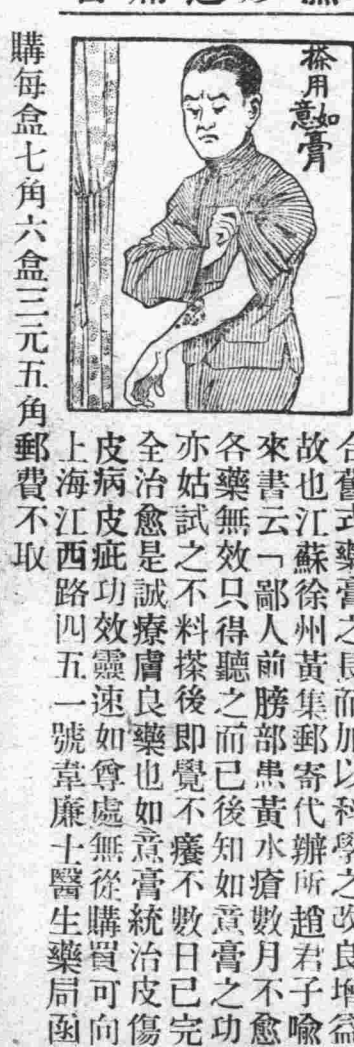 搽用如
意膏
合舊式藥膏之長而加以科學之改良增益
故也江蘇徐州黃集郵寄代辦所趙君子喩
來書云「鄙人前膀部患黃水瘡數月不愈
各藥無效只得聽之而已後知如意膏之功
亦姑試之不料搽後即覺不癢不數日已完
全治愈是誠療膚良藥也如意膏統治皮傷
皮病皮疵功效靈速如尊處無從購買可向
上海江西路四五一號韋廉士醫生藥局函
購每盒七角六盒三元五角郵費不取